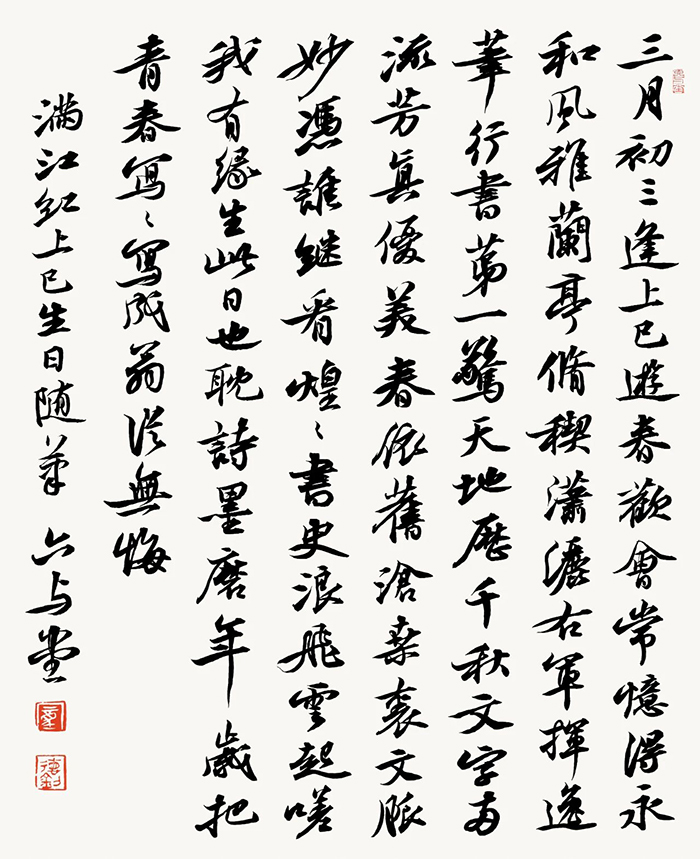 三月初三逢上巳遊春歡會常憶得永
和風雅蘭亭脩禊瀟灑右軍揮逸
筆行書第一驚天地歷千秋文字尚
流芳真優美春依舊滄桑裏文脈
妙憑誰継看煌〻書史浪飛雲起嗟
我有緣生此日也耽詩墨磨年歲把
青春寫〻寫成翁從無悔
滿江紅上巳生日随筆 六与堂